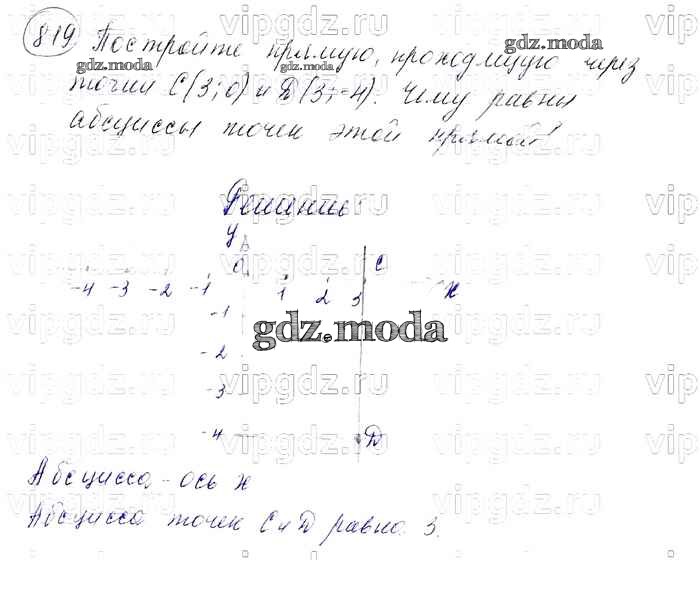 819 Постройте прямую, проходящую через
точки C(3;0) и D(3;-4). Чему равны
абсциссы точек этой прямой?
Решение
y
0 C
-4 -3 -2 -1 1 2 3 x
-1
gdz.moda
-2
-3
-4 D
Абсцисса - ось x
Абсцисса точек C и D равна 3.
vipgdz.ru
gdz.moda